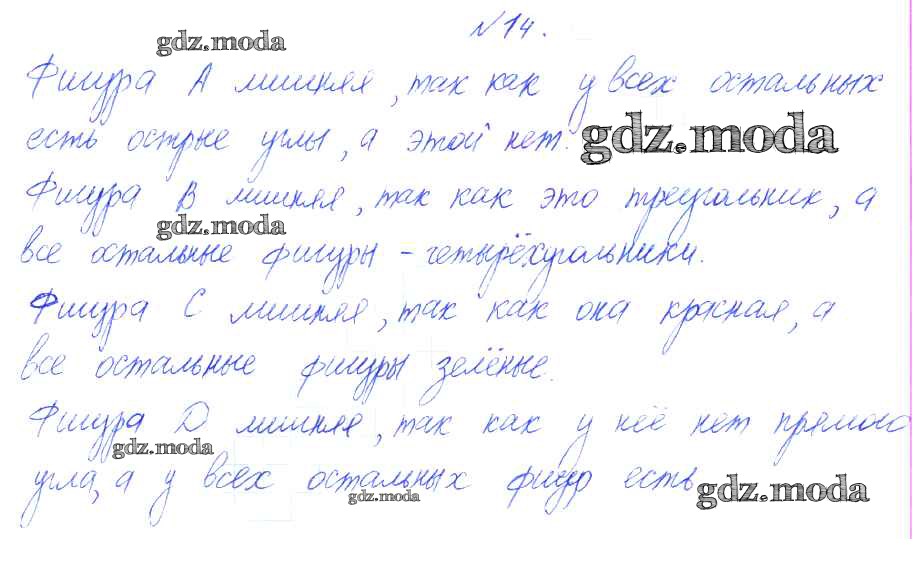 №14.
gdz.moda
Фигура А лишняя, так как у всех остальных
есть острые углы, а этой нет.
gdz.moda
Фигура В лишняя, так как это треугольник, а
gdz.moda
все остальные фигуры - четырёхугольники.
Фигура С лишняя, так как она красная, а
все остальные фигуры зелёные.
Фигура D лишняя, так как у неё нет прямого
gdz.moda
угла, а у всех остальных фигур есть
gdz.moda
gdz.moda